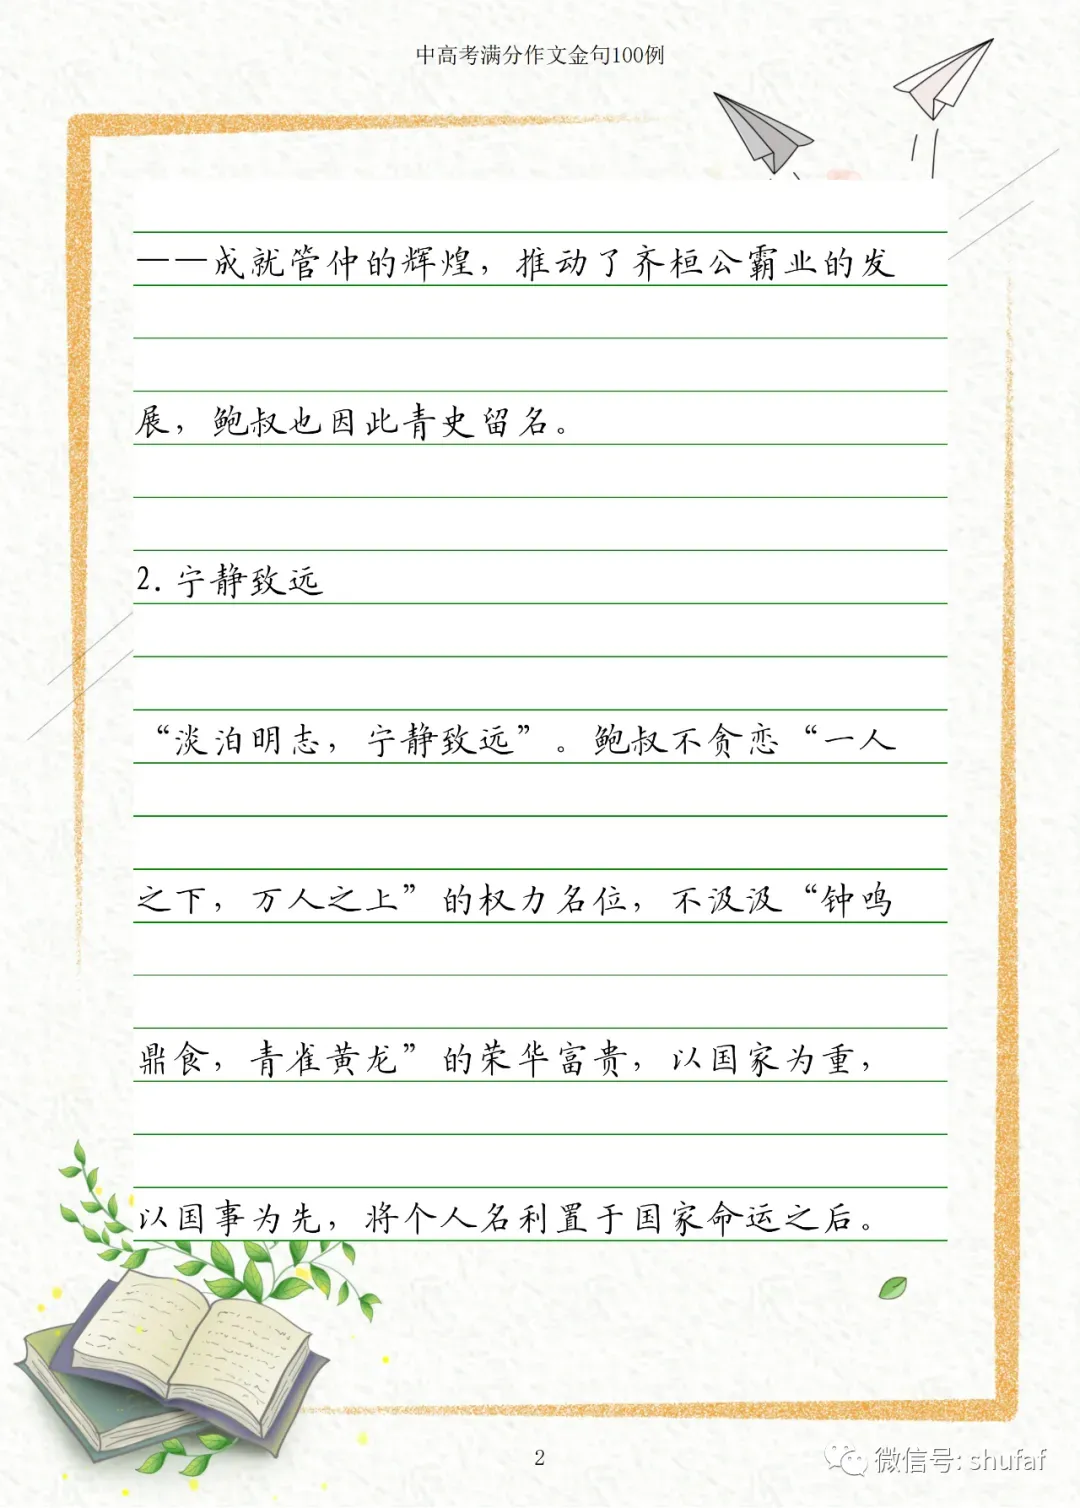 中高考满分作文金句100例
——成就管仲的辉煌，推动了齐桓公霸业的发
展，鲍叔也因此青史留名。
2.宁静致远
“淡泊明志，宁静致远”。鲍叔不贪恋“一人
之下，万人之上”的权力名位，不汲汲“钟鸣
鼎食，青雀黄龙”的荣华富贵，以国家为重，
以国事为先，将个人名利置于国家命运之后。
2
微信号: shufaf